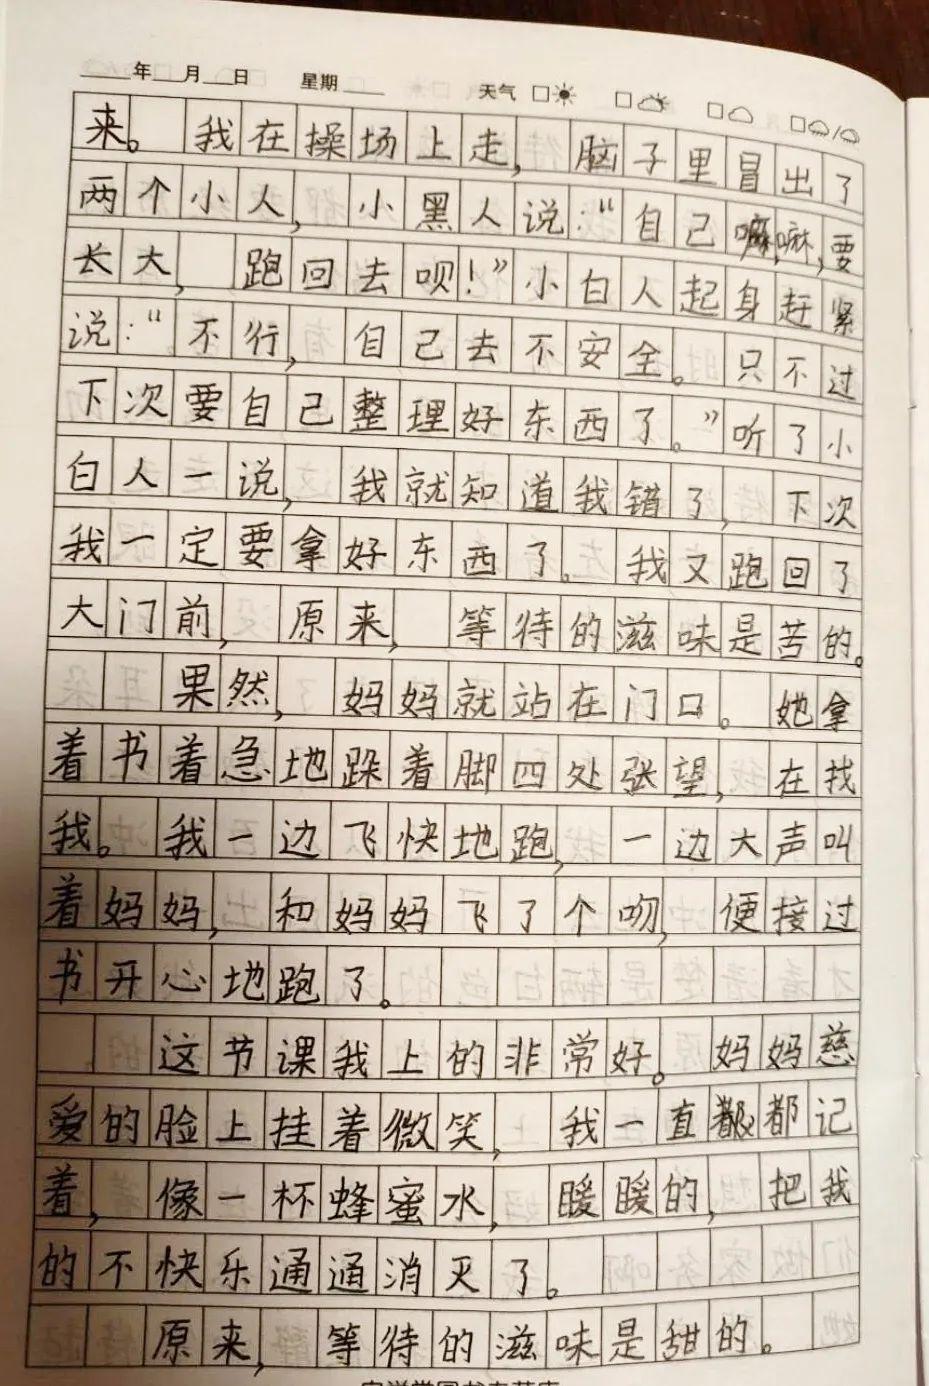 年 月 日 星期 天气
来。我在操场上走，脑子里冒出了
两个小人，小黑人说：“自己嘛，嘛，要
长大，跑回去呗！”小白人起身赶紧
说：“不行，自己去不安全。只不过
下次要自己整理好东西了。”听了小
白人一说，我就知道我错了，下次
我一定要拿好东西了。我又跑回了
大门前，原来，等待的滋味是苦的。
果然，妈妈就站在门口。她拿
着书着急地跺着脚四处张望，在找
我。我一边飞快地跑，一边大声叫
着妈妈，和妈妈飞了个吻，便接过
书开心地跑了。
这节课我上的非常好。妈妈慈
爱的脸上挂着微笑，我一直都记
着，像一杯蜂蜜水，暖暖的，把我
的不快乐通通消灭了。
原来，等待的滋味是甜的。